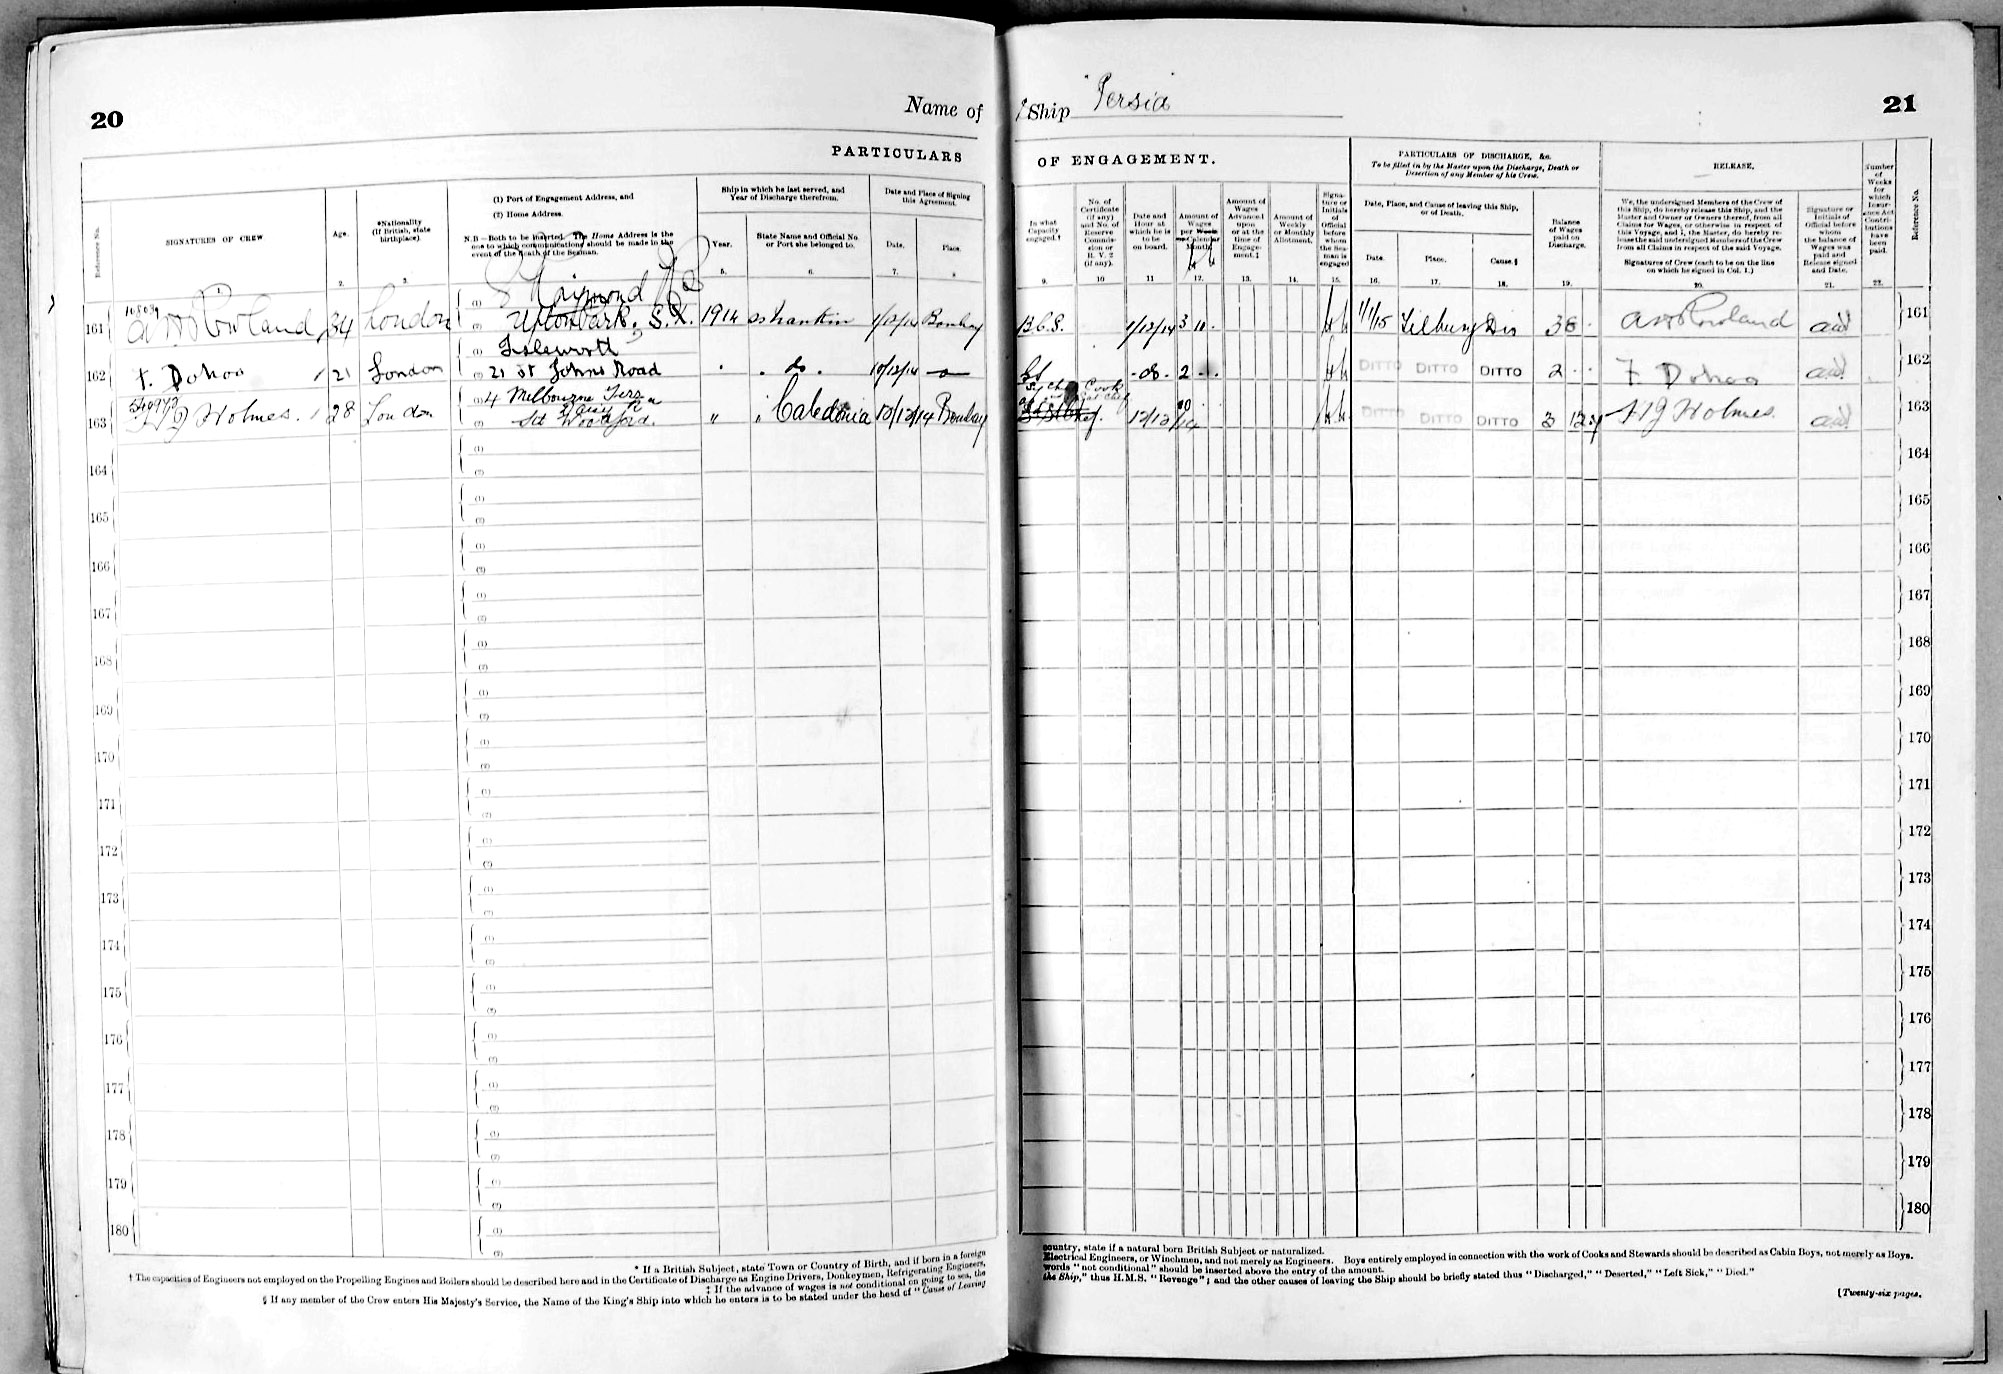 20
Name of
Ship Persia
21
PARTICULARS
OF ENGAGEMENT.
Reference No.
SIGNATURES OF CREW
1
Age.
2.
*Nationality
(If British, state
birthplace).
3.
(1) Port of Engagement Address, and
(2) Home Address.
N.B.—Both to be inserted. The Home Address is the
one to which communications should be made in the
event of the death of the Seaman.
Ship in which he last served, and
Year of Discharge therefrom.
Year.
5.
State Name and Official No.
or Port she belonged to.
6.
Date and Place of Signing
this Agreement.
Date.
7.
Place.
8
In what
Capacity
engaged.†
9.
No. of
Certificate
(if any)
and No. of
Reserve
Commis-
sion or
R. V. 2
(if any).
10
Date and
Hour at
which he is
to be
on board.
11
Amount of
Wages
per Week
or Calendar
Month
12.
Amount of
Wages
Advanced
upon
or at the
time of
Engage-
ment.‡
13.
Amount of
Weekly
or Monthly
Allotment.
14.
Signa-
ture or
Initials
of
Official
before
whom
the Sea-
man is
engaged
15.
PARTICULARS OF DISCHARGE, &c.
To be filled in by the Master upon the Discharge, Death or
Desertion of any Member of his Crew.
Date, Place, and Cause of leaving this Ship,
or of Death.
Date.
16.
Place.
17.
Cause.§
18.
Balance
of Wages
paid on
Discharge.
19.
RELEASE.
We, the undersigned Members of the Crew of
this Ship, do hereby release this Ship, and the
Master and Owner or Owners thereof, from all
Claims for Wages, or otherwise in respect of
this Voyage, and I, the Master, do hereby re-
lease the said undersigned Members of the Crew
from all Claims in respect of the said Voyage.
Signatures of Crew (each to be on the line
on which he signed in Col. 1.)
20.
Signature or
Initials of
Official before
whom
the balance of
Wages was
paid and
Release signed
and Date.
21.
Number
of
Weeks
for
which
Insur-
ance Act
Contri-
butions
have
been
paid.
22.
Reference No.
161 A H Rowland 34 London (1) Raimond Rd
(2) Upton Park. 1914 ss Shankin 1/12/14 Bombay B.C.S. 1/12/14 3 10 1/1/15 Tilbury Dis 38 A H Rowland 161
162 F. Dohoo 21 London (1) Isleworth
(2) 21 St Johns Road do 10/12/14 G.S. do 2 DITTO DITTO DITTO 2 F. Dohoo 162
163 Holmes. 28 London 4 Melbourne Terr
Sth Woodford. " " Caledonia 12/12/14 Bombay 12/12/14 DITTO DITTO DITTO 3 12 Holmes. 163
164 (1) (2) 164
165 (1) (2) 165
166 (1) (2) 166
167 (1) (2) 167
168 (1) (2) 168
169 (1) (2) 169
170 (1) (2) 170
171 (1) (2) 171
172 (1) (2) 172
173 (1) (2) 173
174 (1) (2) 174
175 (1) (2) 175
176 (1) (2) 176
177 (1) (2) 177
178 (1) (2) 178
179 (1) (2) 179
180 (1) (2) 180
* If a British Subject, state Town or Country of Birth, and if born in a foreign
country, state if a natural born British Subject or naturalized.
† The capacities of Engineers not employed on the Propelling Engines and Boilers should be described here and in the Certificate of Discharge as Engine Drivers, Donkeymen, Refrigerating Engineers,
Electrical Engineers, or Winchmen, and not merely as Engineers. Boys entirely employed in connection with the work of Cooks and Stewards should be described as Cabin Boys, not merely as Boys.
‡ If the advance of wages is not conditional on going to sea, the
words "not conditional" should be inserted above the entry of the amount.
§ If any member of the Crew enters His Majesty's Service, the Name of the King's Ship into which he enters is to be stated under the head of "Cause of Leaving
the Ship," thus H.M.S. "Revenge"; and the other causes of leaving the Ship should be briefly stated thus "Discharged," "Deserted," "Left Sick," "Died."
[Twenty-six pages.